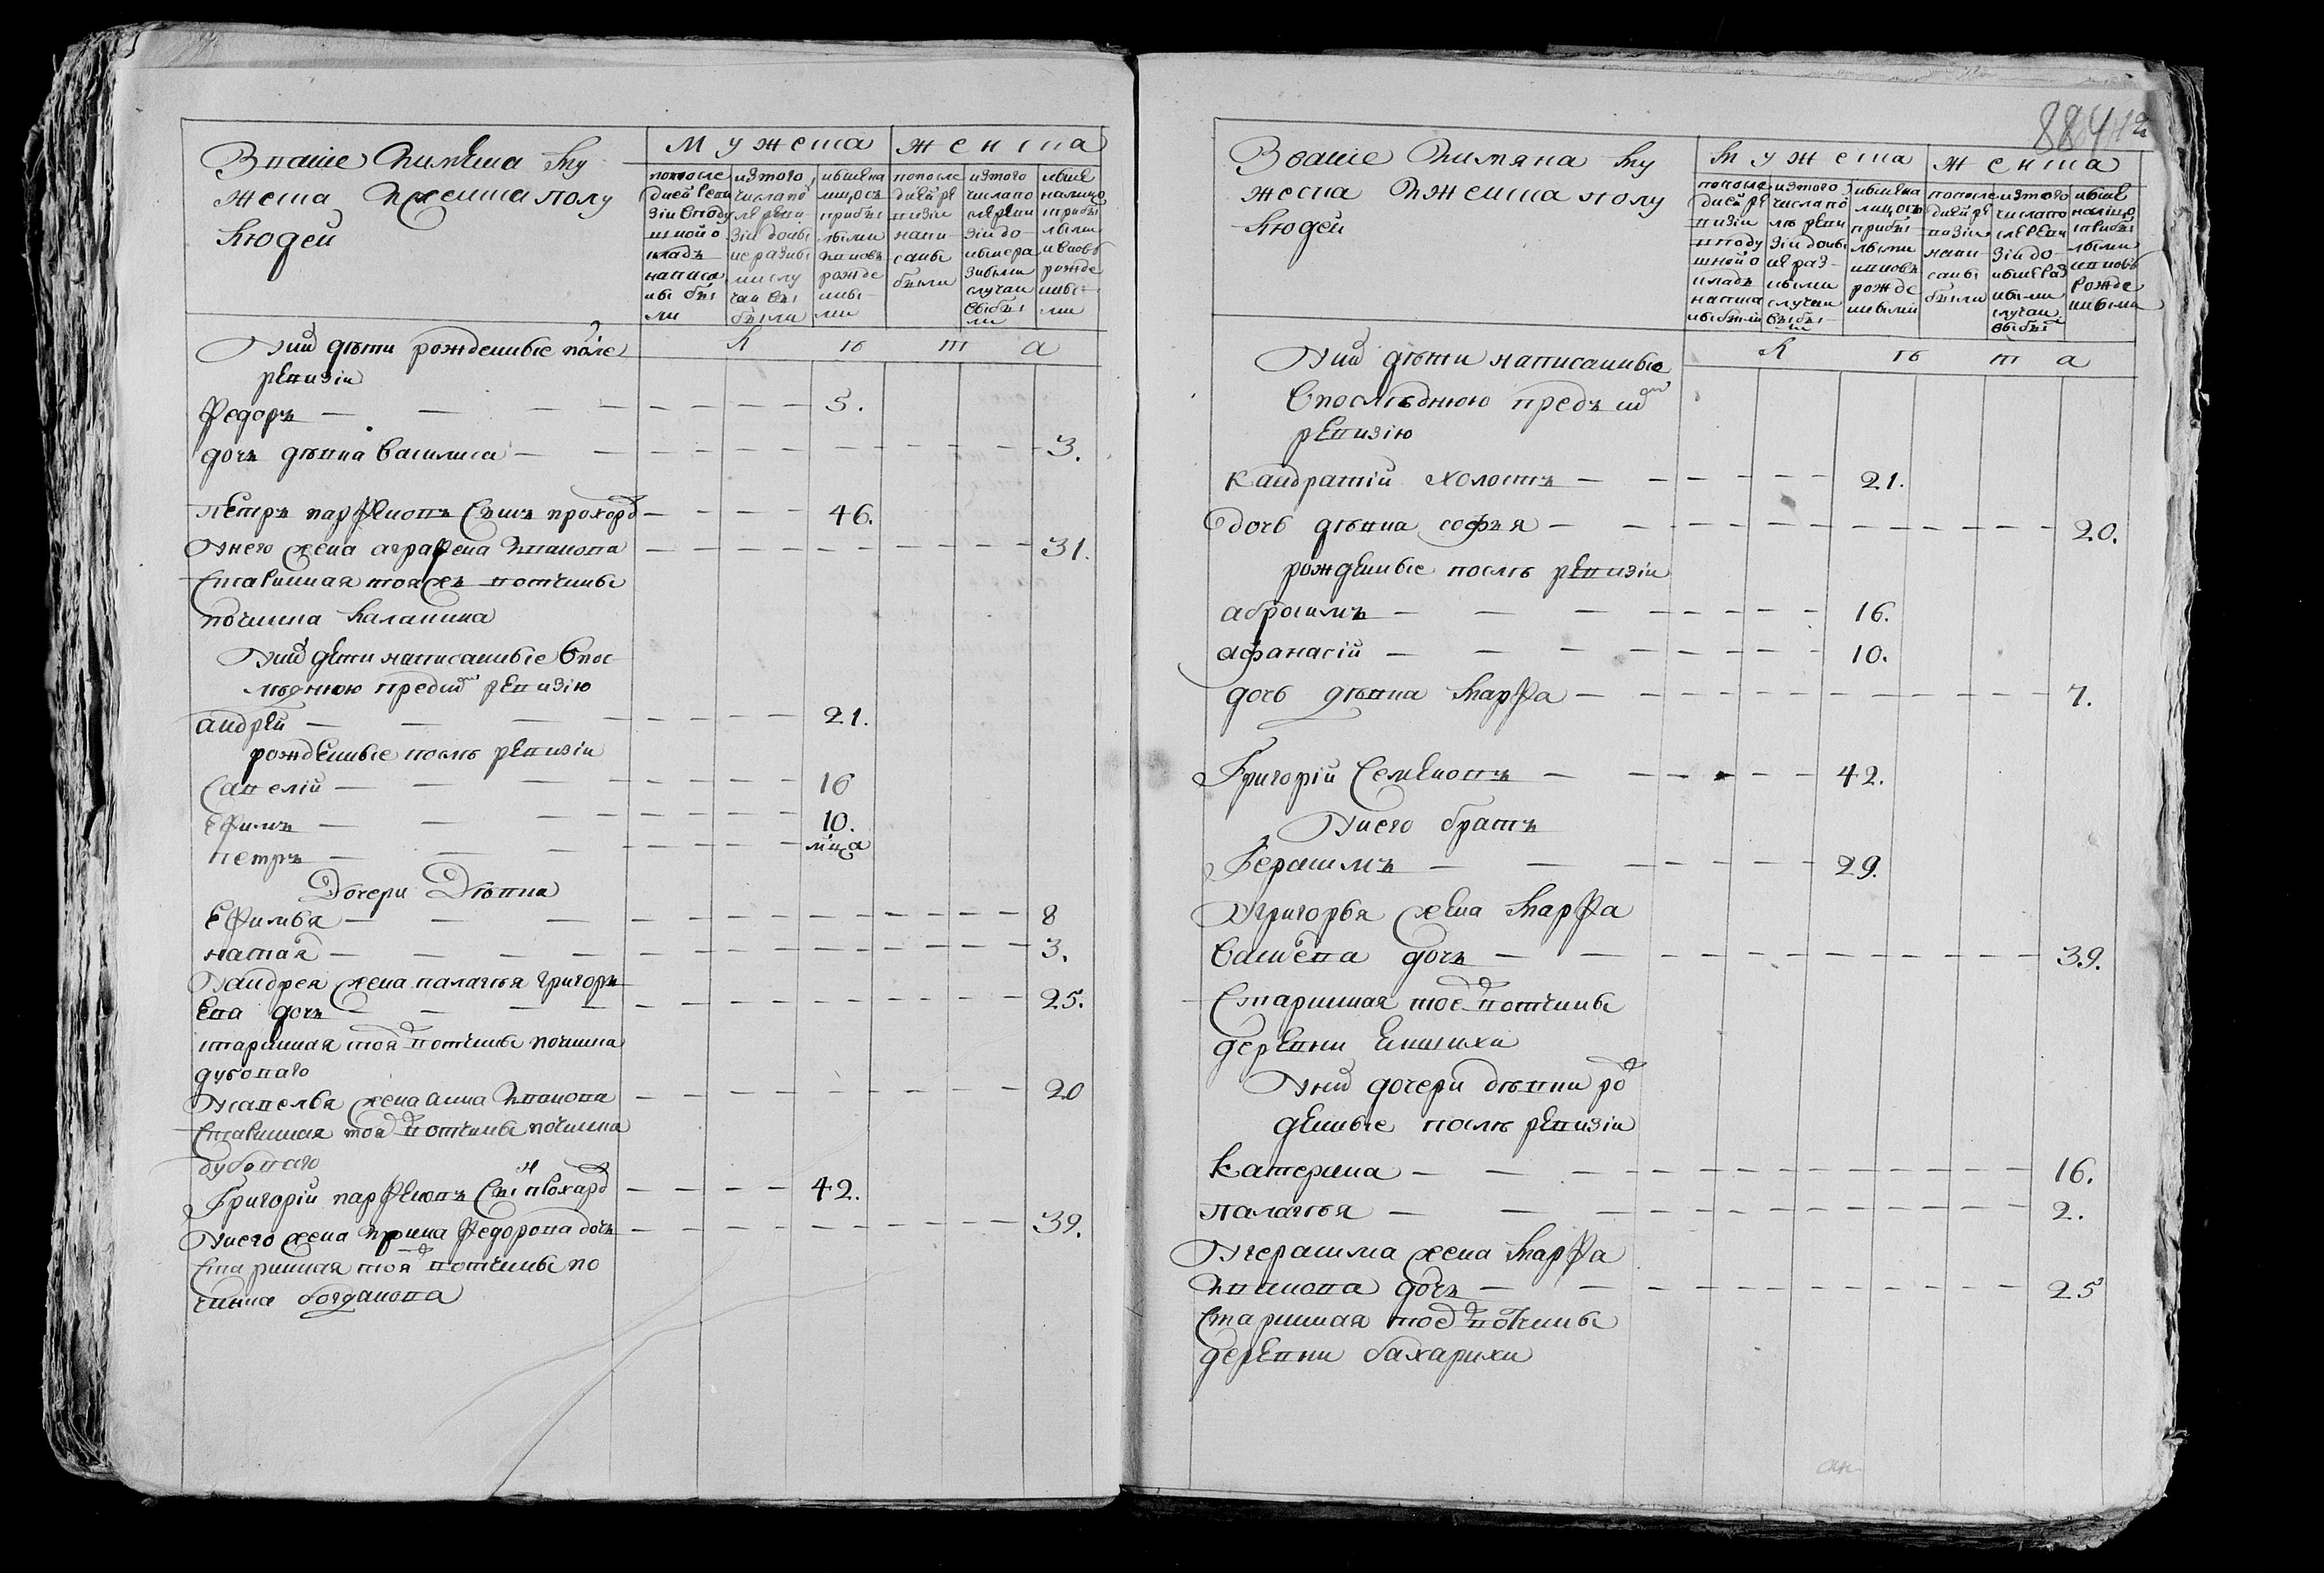 Звание и имена му
жеска и женска полу
людей
мужеска женска
по последней ревизии в подушной оклад написаны были
из того числа после ревизии до ныне разными случаи выбыли
ныне на лицо с прибылыми и вновь рожденными
по последней ревизии написаны были
из того числа после ревизии до ныне разными случаи выбыли
ныне на лицо с прибылыми и вновь рожденными
лѣта
У них дѣти рожденные после
ревизіи
Федоръ 5.
дочь дѣвка василиса 3.
петръ парфеновъ сынъ прохоро 46.
У него жена аграфена Иванова 31.
старинная тояжъ вотчины
починка
У них дети написанные в пос
лѣднюю пред сим ревизію
андрей 21.
рожденные послѣ ревизіи
Савелій 16
ефимъ 10.
петръ м҃ца
Дочери Дѣвки
ефимья 8
наталя 3.
У андрея жена палагея григорь
ева дочь 25.
старинная той вотчины починка
дубоваго
У савелья жена анна Иванова 20
старинная той вотчины починка
дубоваго
Григорій парфеновъ сын прохоро 42.
У него жена Ирина федорова дочь 39.
старинная той вотчины по
чинка богданова
884
Звание и имяна му
жеска и женска полу
людей
мужеска женска
по последней ревизии в подушной оклад написаны были
из того числа после ревизии до ныне разными случаи выбыли
ныне на лицо с прибылыми и вновь рожденными
по последней ревизии написаны были
из того числа после ревизии до ныне разными случаи выбыли
ныне на лицо с прибылыми и вновь рожденными
лѣта
У них дѣти написанные
в последнюю предъ сим
ревизію
кандратій холостъ 21.
дочь дѣвка софья 20.
рожденные послѣ ревизіи
абросимъ 16.
афанасій 10.
дочь дѣвка марфа 7.
Григорій семеновъ 42.
У него братъ
Герасимъ 29.
У григорья жена марфа
васильева дочь 39.
старинная той вотчины
деревни
У них дочери дѣвки ро
денные послѣ ревизіи
катерина 16.
палагея 2.
У герасима жена марфа
Иванова дочь 25
старинная той вотчины
деревни бахарихи